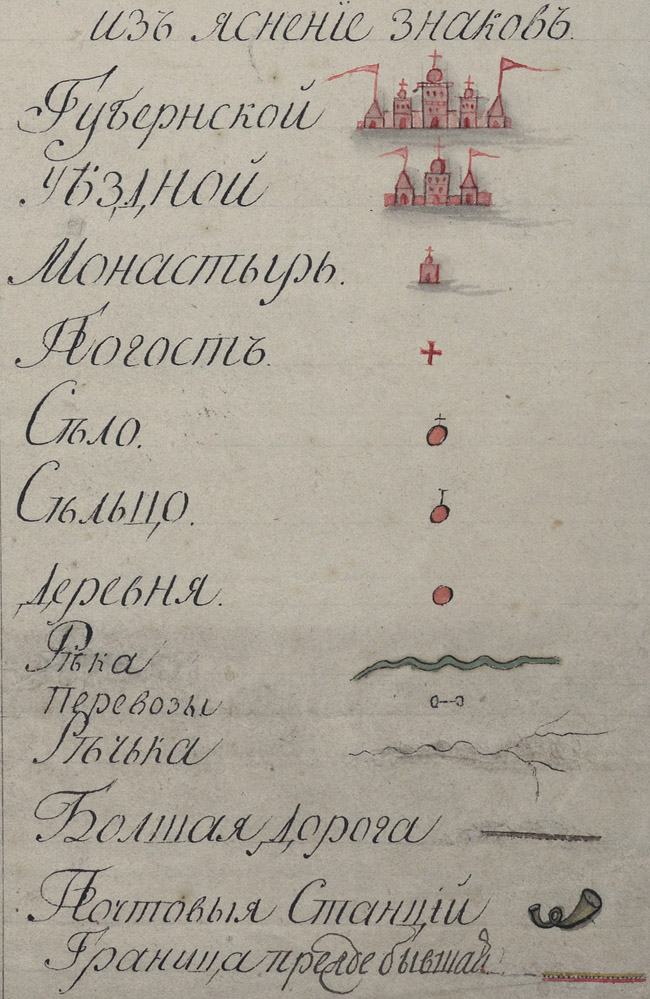 изъ ясненіе знаковъ.
Губернской
Уѣздной
Монастырь.
Погостъ.
Сѣло.
Сѣльцо.
деревня.
Рѣка
перевозы
Рѣчька
Болшая дорога
Почтовыя Станціи
Граница прежде бывшая